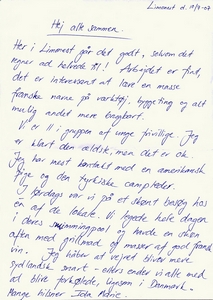 Limmest d. 18/7-07
Hej alle sammen.
Her i Limmest går det godt, selvom det
regner ad helvede til! Arbejdet er fint,
det er interessant at lave en masse
franske navne på værktøj, byggeting og alt
mulig andet mere bagbart.
Vi er 11 i gruppen af unge frivillige. Jeg
er klart den ældste, men det er ok.
Jeg har mest kontakt med en amerikansk
pige og den tyrkiske campleder.
I lørdags var vi på et skønt besøg hos
en af de lokale. Vi hyggede hele dagen
i deres swimmingpool og havde en skøn
aften med grillmad og masser af god fransk
vin. Jeg håber at vejret bliver mere
sydlandsk snart - ellers ender vi alle med
at blive forkølede, ligesom i Danmark.
Mange hilsner